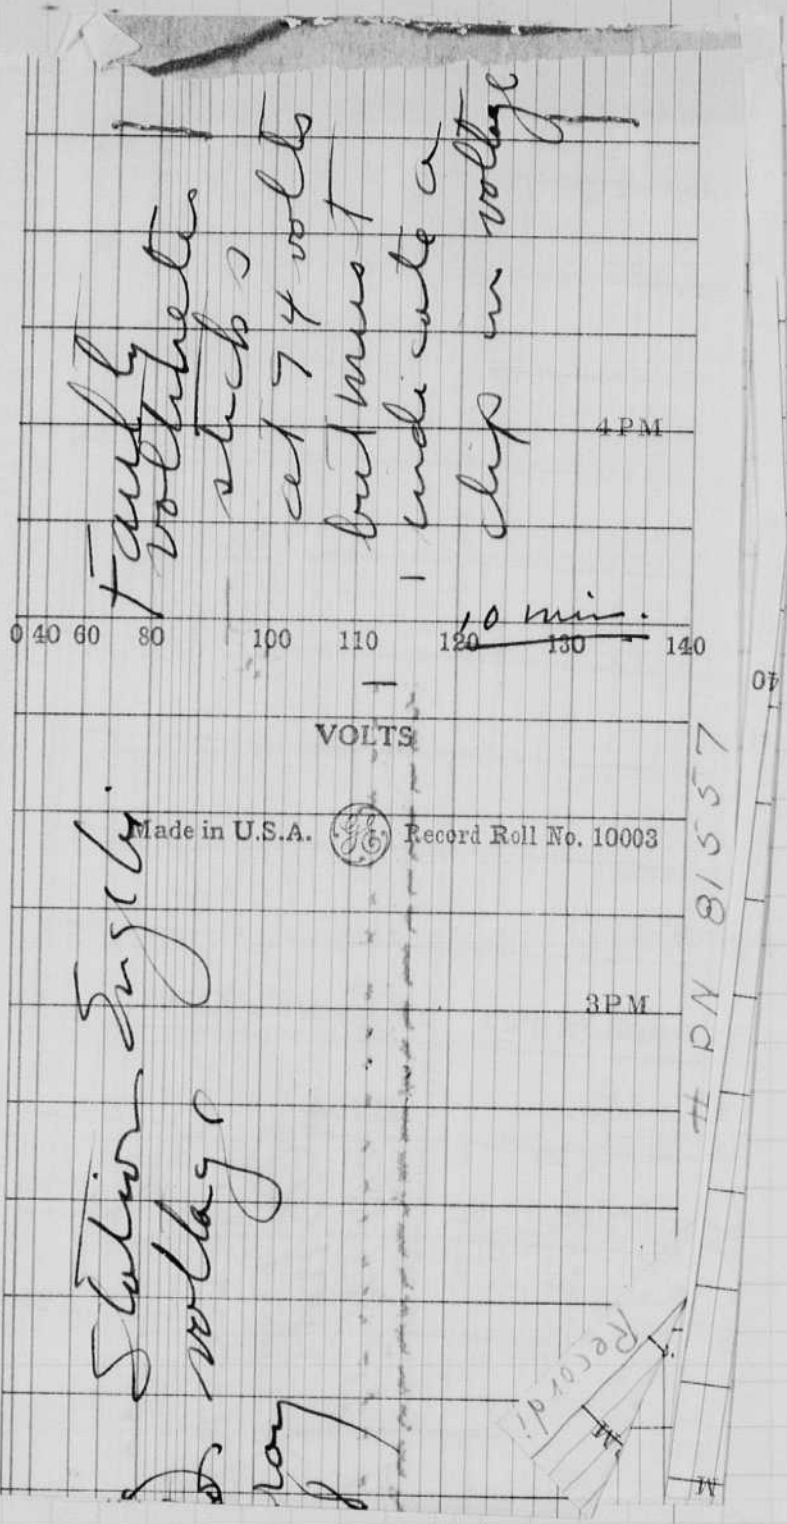 Faulty
voltmeter
sticks
at 74 volts
but must
indicate a
dip in voltage
4 PM
10 min.
0 40 60 80 100 110 120 130 140
VOLTS
Made in U.S.A. GE Record Roll No. 10003
3 PM
Station
voltage
# PN 81557
Recordi
40
M
M